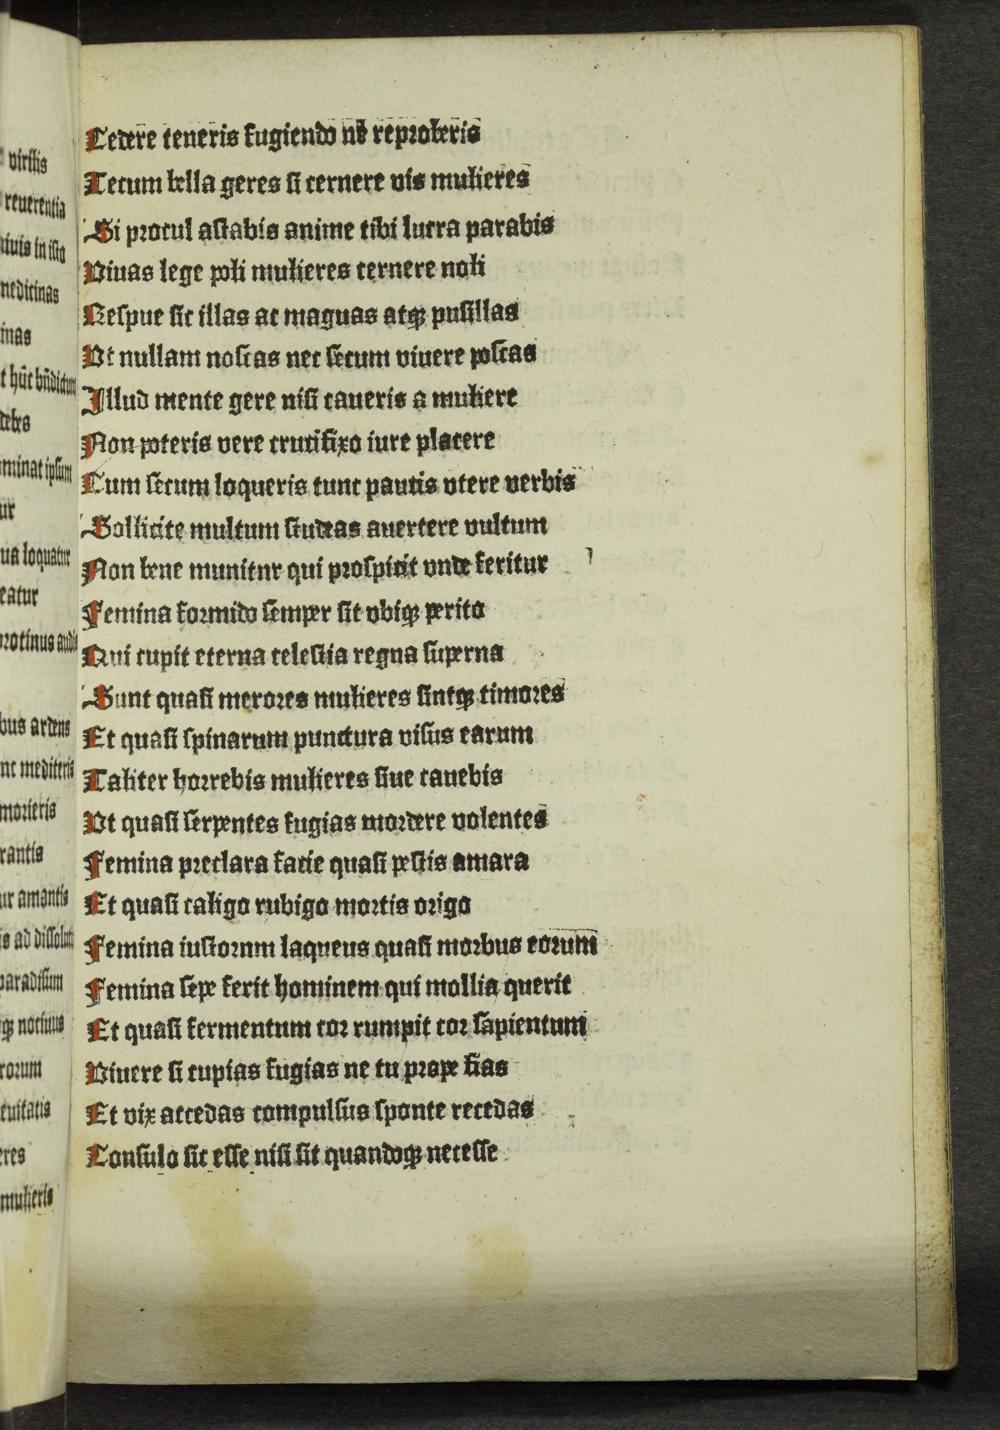 virilis
reuerentia
uiuis in isto
medicinas
inas
t hūc bn̄dictum
minat ipsum
ur
ua loquatur
eatur
protinus audis
bus ardens
nc mediteris
morieris
rantis
ur amantis
paradisum
qꝫ nociuus
rorum
cuitatis
eres
mulieris
Cedere teneris fugiendo ne reproberis
Tecum bella geres si cernere vis mulieres
Si procul astabis anime tibi lucra parabis
Viuas lege poli mulieres cernere noli
Respue sic illas ac maguas atqꝫ pusillas
Vt nullam noscas nec secum viuere poscas
Illud mente gere nisi caueris a muliere
Non poteris vere crucifixo iure placere
Cum secum loqueris tunc paucis vtere verbis
Sollicite multum studeas auertere vultum
Non bene munitnr qui prospicit vnde feritur
Femina formido semper sit vbiqꝫ perito
Qui cupit eterna celestia regna superna
Sunt quasi merores mulieres sintqꝫ timores
Et quasi spinarum punctura visus earum
Taliter horrebis mulieres siue cauebis
Vt quasi serpentes fugias mordere volentes
Femina preclara facie quasi pestis amara
Et quasi caligo rubigo mortis origo
Femina iustornm laqueus quasi morbus eorum
Femina sepe ferit hominem qui mollia querit
Et quasi fermentum cor rumpit cor sapientum
Viuere si cupias fugias ne tu prope fias
Et vix accedas compulsus sponte recedas
Consulo sic esse nisi sit quandoqꝫ necesse